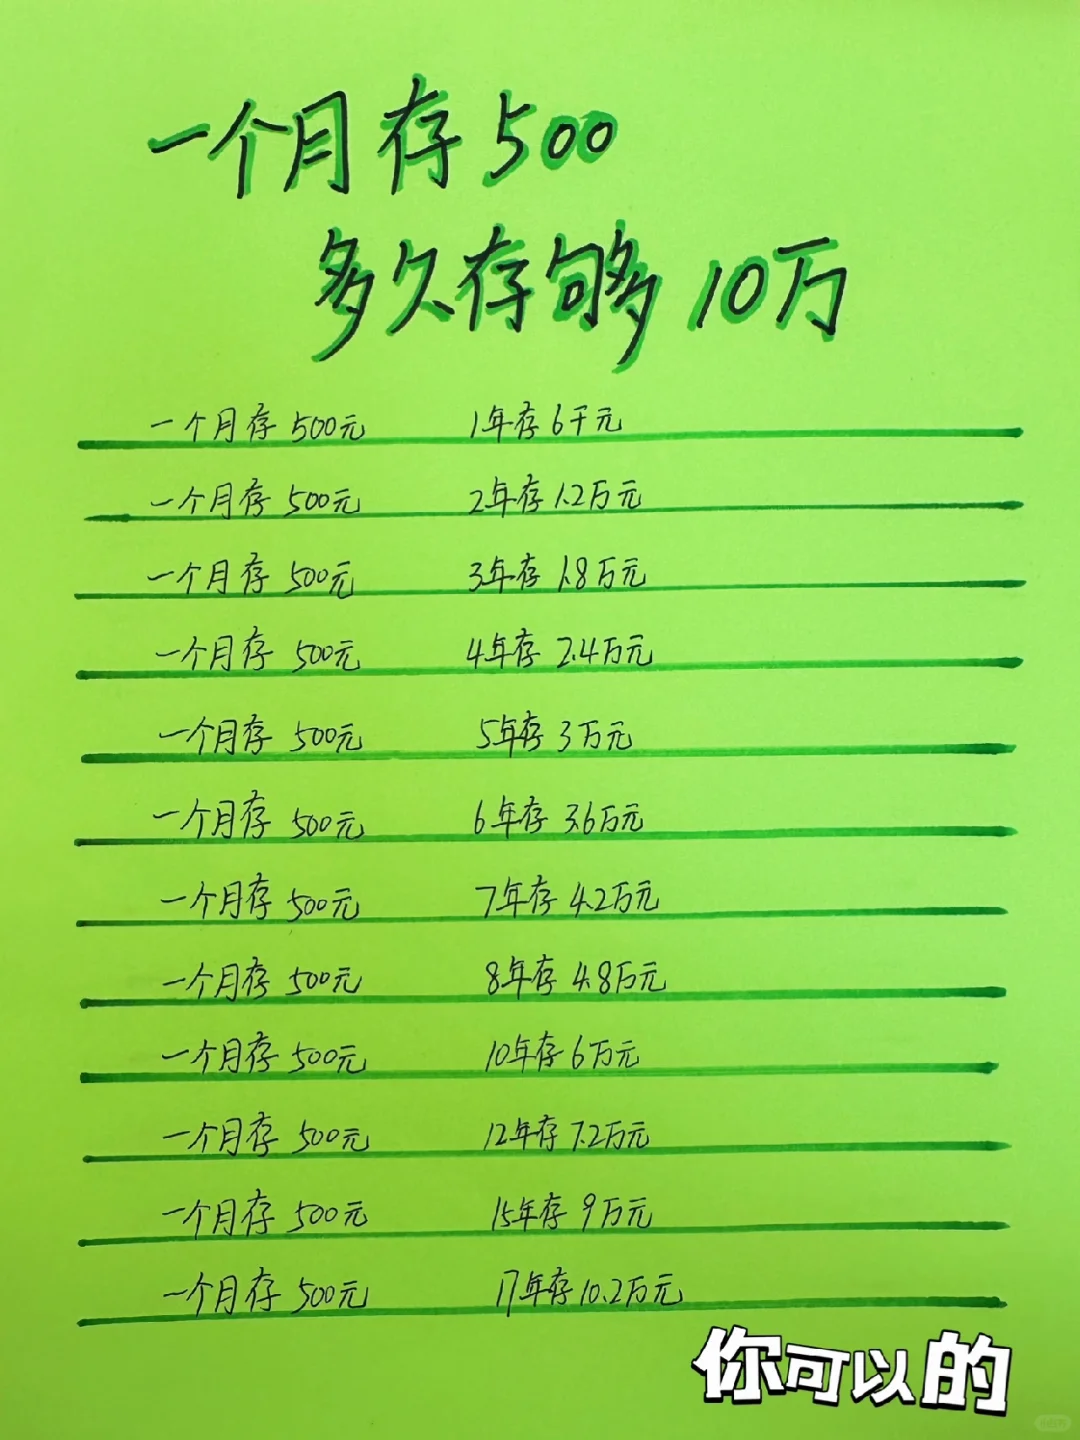 一个月存500
多久存够10万
一个月存 500元 1年存6千元
一个月存 500元 2年存1.2万元
一个月存 500元 3年存1.8万元
一个月存 500元 4年存2.4万元
一个月存 500元 5年存3万元
一个月存 500元 6年存3.6万元
一个月存 500元 7年存4.2万元
一个月存 500元 8年存4.8万元
一个月存 500元 10年存6万元
一个月存 500元 12年存7.2万元
一个月存 500元 15年存9万元
一个月存 500元 17年存10.2万元
你可以的